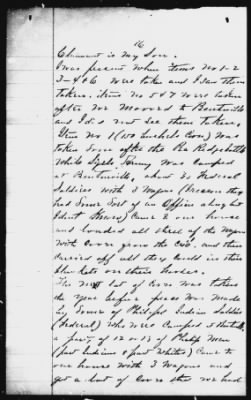 16
Claimant is my Son.
I was present when Items No 1-2
3-4 & 6 were taken and I saw them
taken. Items No 5 & 7 were taken
after we moved to Bentonville
and I did not see them taken.
Item No 1 (100 bushels Corn) was
taken soon after the Pea Ridge battle
while Army was Camped
at Bentonville, about 20 Federal
Soldiers with 3 Wagons (
had Some Sort of an Officer along but
I dont Know) Came to our house
and loaded all three of the Wagons
with Corn from the Crib. and then
carried off all they could in their
blankets on their horses.
The next lot of Corn was taken
the Year before peace was Made
by Some of Phillips Indian Soldiers
(Federal) who were Camped at
a party of 12 or 13 of Phillips Men
(part Indians & part Whites) Came to
our house with 3 Wagons and
got a load of Corn that we had